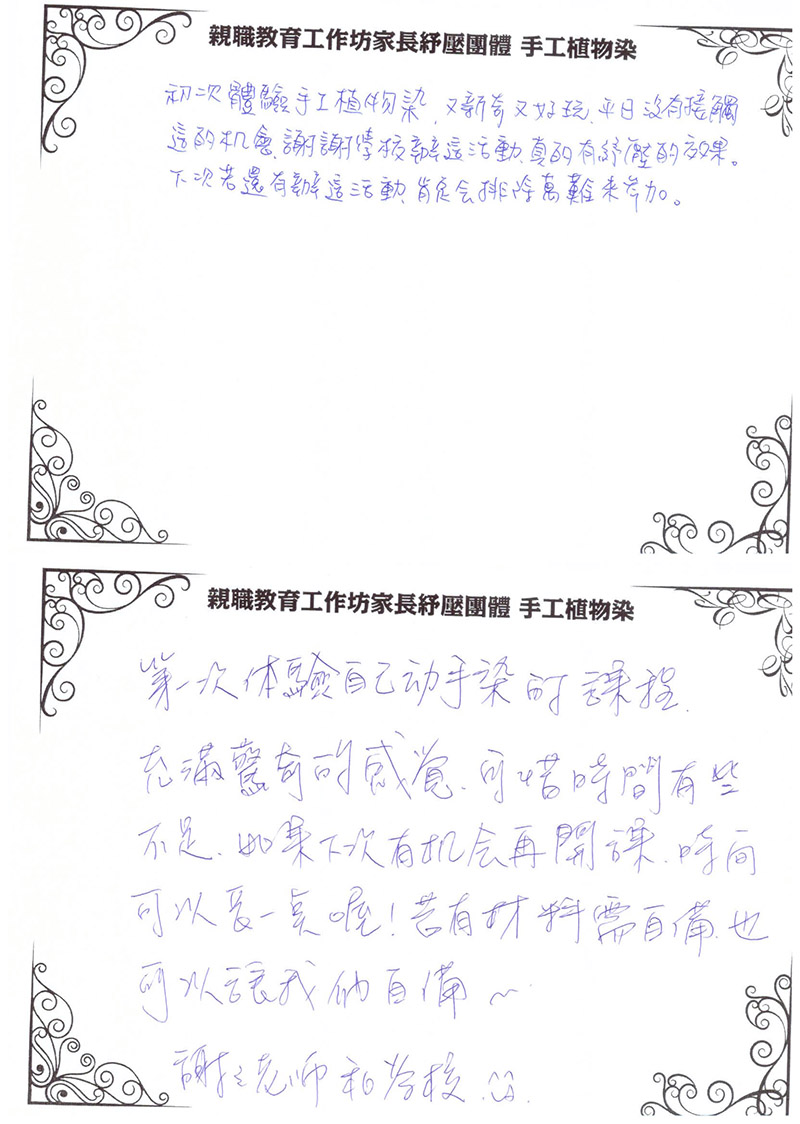 親職教育工作坊家長紓壓團體 手工植物染
初次體驗手工植物染，又新奇又好玩，平日沒有接觸
這的机會，謝謝學校辦這活動，真的有紓壓的效果。
下次若還有辦這活動，肯定会排除萬難來參加。
親職教育工作坊家長紓壓團體 手工植物染
第一次体驗自己动手染的課程.
充滿驚奇的感覚.可惜時間有些
不足.如果下次有机会再開課.時间
可以長一点喔!若有材料需自備.也
可以讓我们自備~
謝々老师和学校.